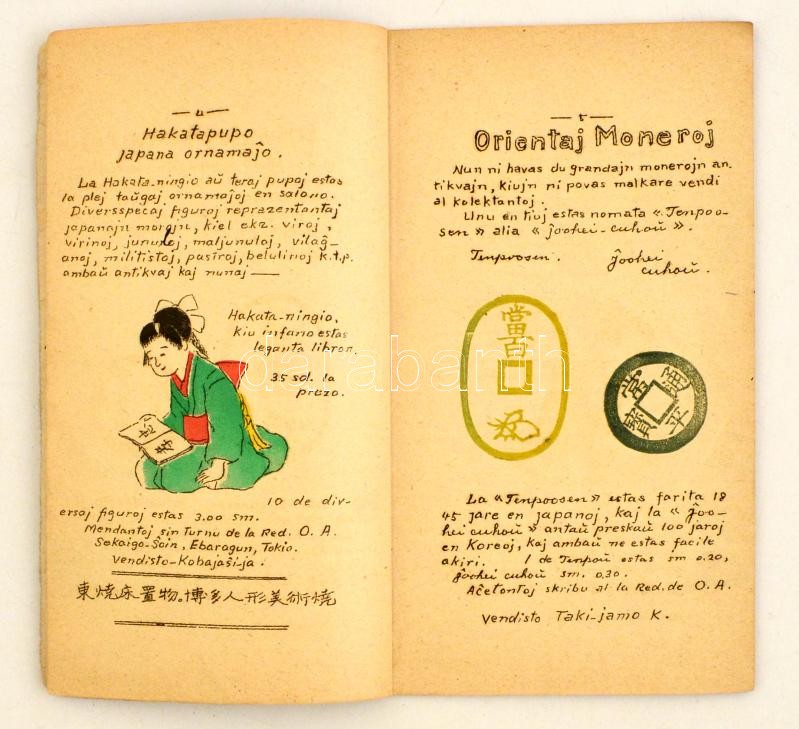 — 4 —
Hakatapupo
japana ornamaĵo.
La Hakata-ningio aŭ teraj pupoj estas
la plej taŭgaj ornamaĵoj en salono.
Diversspecaj figuroj reprezentantaj
japanajn morojn, kiel ekz. viroj,
virinoj, junuloj, maljunuloj, vilaĝ-
anoj, militistoj, pastroj, belulinoj k.t.p.
ambaŭ antikvaj kaj nunaj —
Hakata-ningio,
kiu infano estas
leganta libron.
35 sd. la
prezo.
10 de div-
ersaj figuroj estas 3.00 sm.
Mendantoj sin Turnu de la Red. O. A.
Sekaigo-Soin, Ebaragun, Tokio.
Vendisto-Kobajaŝi-ja.
東焼床置物。博多人形美術焼
— 5 —
Orientaj Moneroj
Nun ni havas du grandajn monerojn an-
tikvajn, kiujn ni povas malkare vendi
al kolektantoj.
Unu en tiuj estas nomata «Tenpoo-
sen» alia «ĵoohei-cuhoŭ».
Tenpoosen.
Ĵoohei
cuhoŭ.
當百
常平通寶
La «Tenpoosen» estas farita 18
45 jare en japanoj, kaj la «Ĵoo-
hei cuhoŭ» antaŭ preskaŭ 100 jaroj
en Koreoj, kaj ambaŭ ne estas facile
akiri. 1 de Tenpoŭ estas sm 0.20,
Ĵoohei cuhoŭ sm. 0.30.
Aĉetontoj skribu al la Red. de O. A.
Vendisto Taki-jamo K.
darabanth